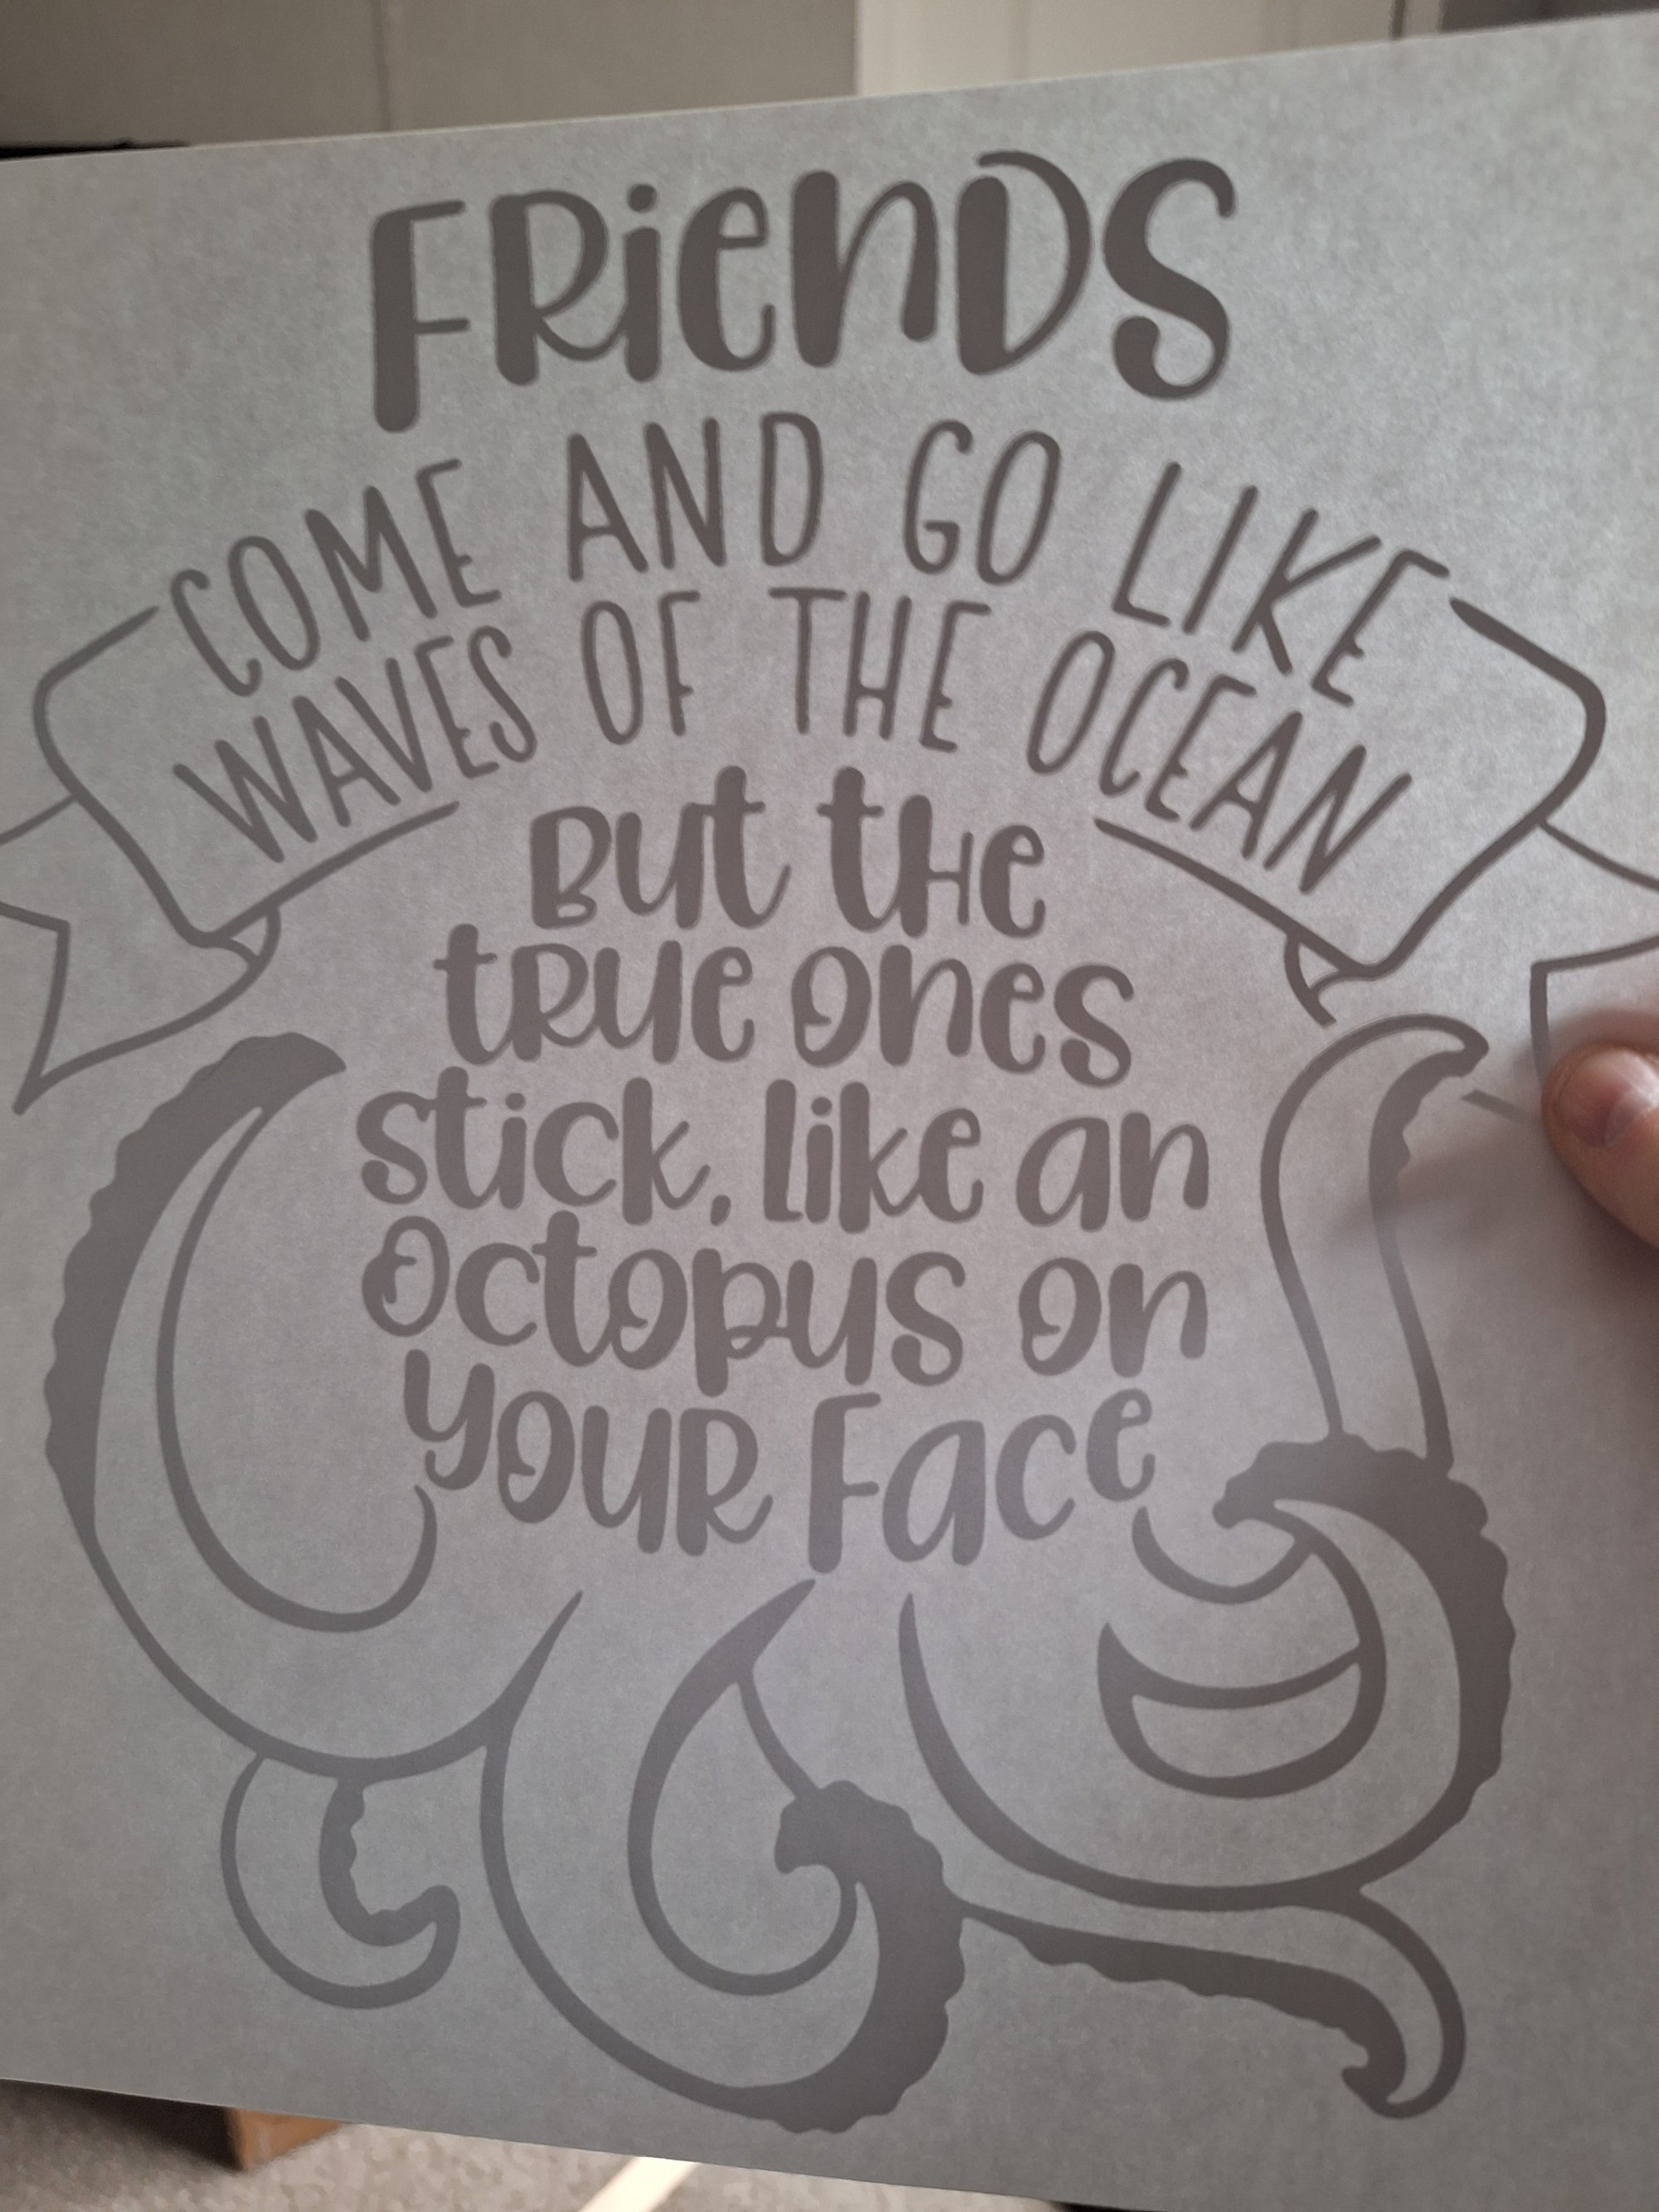 FRienDS
COME AND GO LIKE
WAVES OF THE OCEAN
But the
tRue ones
stick, like an
Octopus on
youR Face